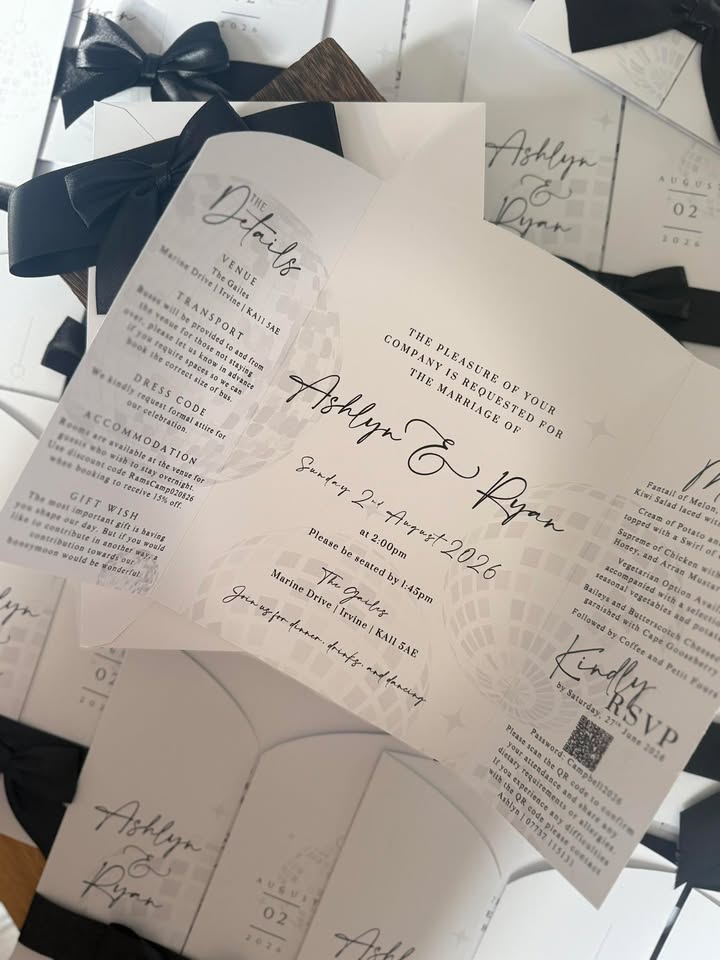 THE
Details
VENUE
The Gailes
Marine Drive | Irvine | KA11 5AE
TRANSPORT
Buses will be provided to and from
the venue for those not staying
over, please let us know in advance
if you require spaces so we can
book the correct size of bus.
DRESS CODE
We kindly request formal attire for
our celebration.
ACCOMMODATION
Rooms are available at the venue for
guests who wish to stay overnight.
Use discount code RamsCamp020826
when booking to receive 15% off.
GIFT WISH
The most important gift is having
you shape our day. But if you would
like to contribute in another way, a
contribution towards our
honeymoon would be wonderful.
THE PLEASURE OF YOUR
COMPANY IS REQUESTED FOR
THE MARRIAGE OF
Ashlyn & Ryan
Sunday 2nd August 2026
at 2:00pm
Please be seated by 1:45pm
The Gailes
Marine Drive | Irvine | KA11 5AE
Join us for dinner, drinks, and dancing
Fantail of Melon,
Kiwi Salad laced wi
Cream of Potato an
topped with a Swirl of
Supreme of Chicken with
Honey, and Arran Mustar
Vegetarian Option Availa
accompanied with a selecti
seasonal vegetables and potat
Baileys and Butterscotch Cheesec
garnished with Cape Gooseberry
Followed by Coffee and Petit Four
Kindly
RSVP
by Saturday, 27th June 2026
Password: Campbell2026
Please scan the QR code to confirm
your attendance and share any
dietary requirements or allergies.
If you experience any difficulties
with the QR code please contact
Ashlyn | 07737 115131
02
2026
Ashlyn
&
Ryan
AUGUS
02
2026
lyn
02
Ashlyn
&
Ryan
AUGUST
02
2026
Ashl